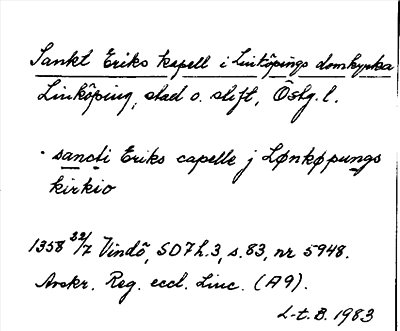 Sankt Eriks kapell i Linköpings domkyrka
Linköping, stad o. stift, Östg. l.
· sancti Eriks capelle j Lønkøpungs
kirkio
1358 22/7 Vindö, SD7h.3, s.83, nr 5948.
Avskr. Reg. eccl. Linc. (A9).
L-t. B. 1983